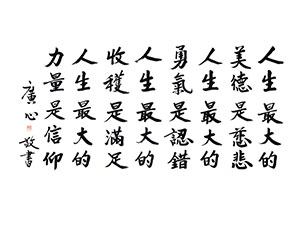 人生最大的
美德是慈悲
人生最大的
勇氣是認錯
人生最大的
收穫是滿足
人生最大的
力量是信仰
廣心
敬書